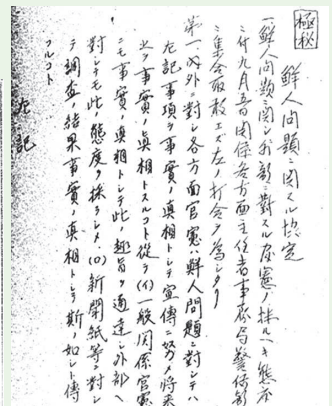 極秘
鮮人問題ニ関スル協定
一、鮮人問題ニ関シ外部ニ対スル官憲ノ採ルヘキ態度
ニ付九月五日関係各方面主任者事務局警備部
ニ集合取敢エス左ノ打合ヲ為シタリ
第一、内外ニ対シ各方面官憲ハ鮮人問題ニ対シテハ
左記事項ヲ事実ノ真相トシテ宣伝ニ努メ将来
之ヲ事実ノ真相トスルコト従テ(イ)一般関係官憲
ニモ事実ノ真相トシテ此ノ趣旨ヲ通達シ外部ヘ
対シテモ此ノ態度ヲ採ラシメ(ロ)新聞紙等ニ対シ
テ調査ノ結果事実ノ真相トシテ斯ノ如シト伝
フルコト
左記